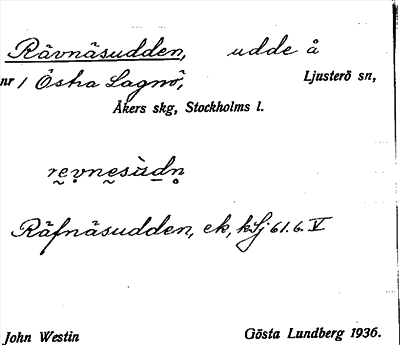 Rävnäsudden, udde å
nr 1 Östra Lagnö, Ljusterö sn,
Åkers skg, Stockholms l.
re̯vnesùdn̥
Räfnäsudden, ek, kSj 61.6. V
John Westin Gösta Lundberg 1936.